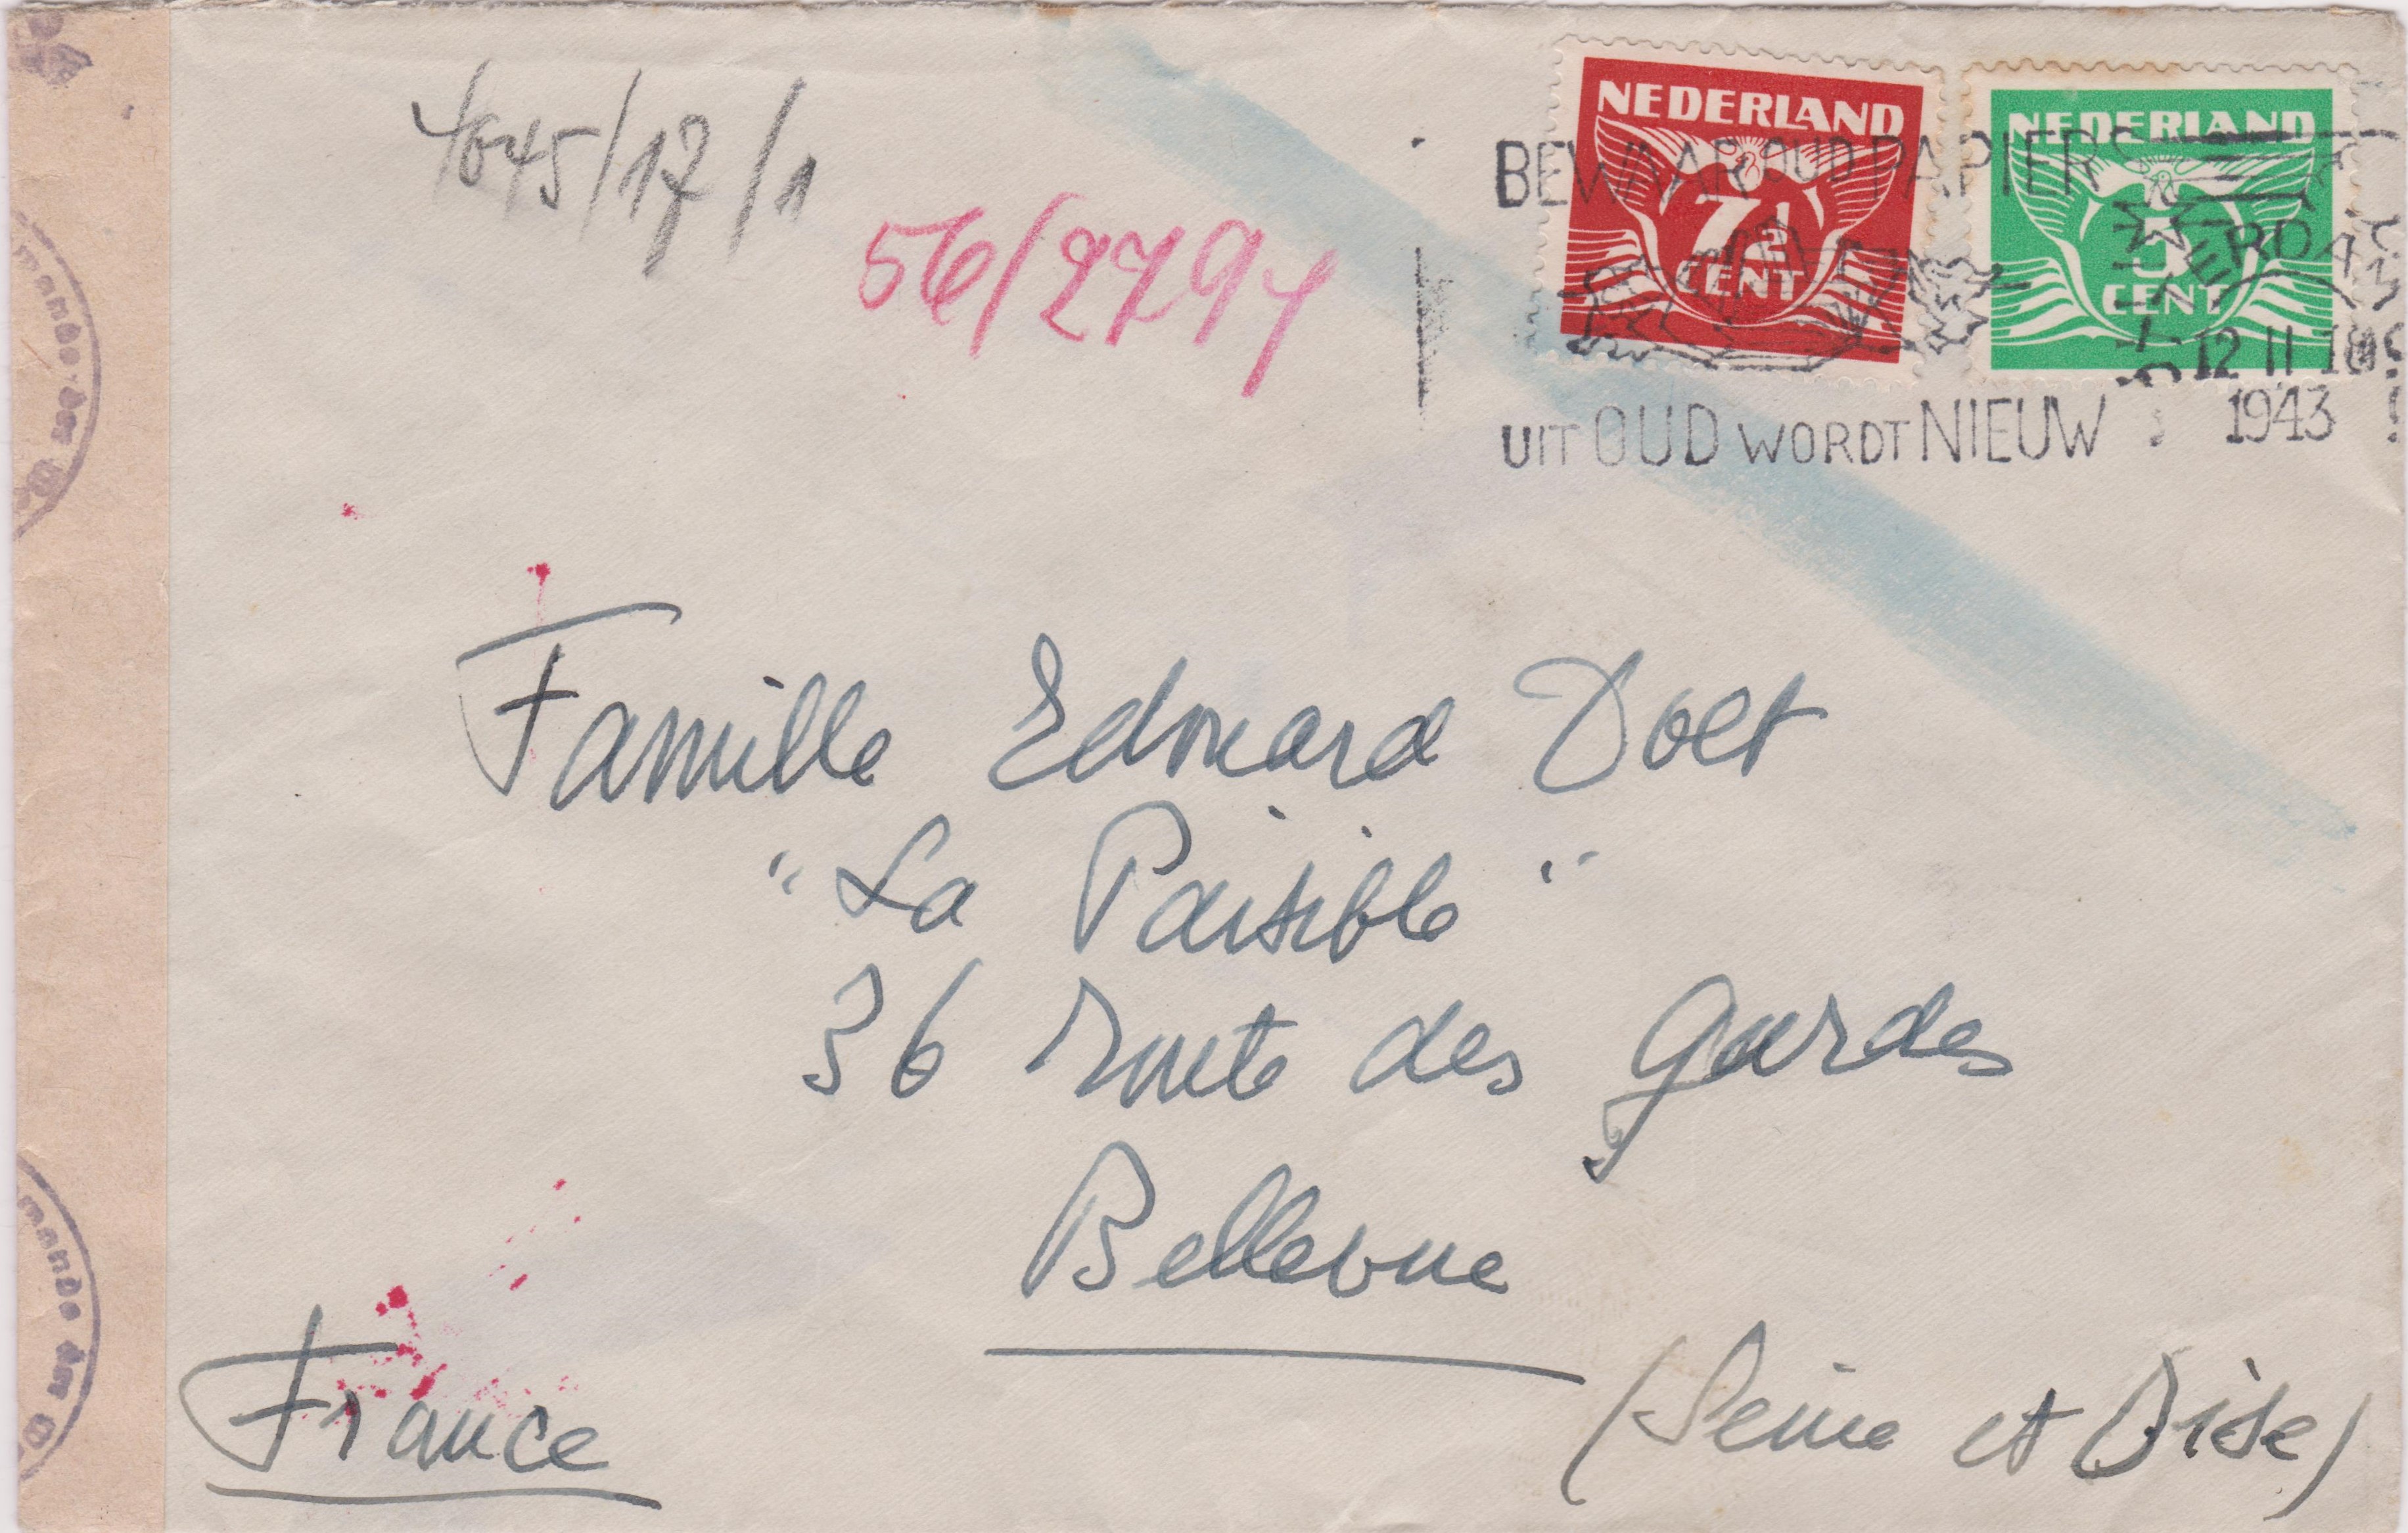 4645/17/1
56/2794
NEDERLAND
7½
CENT
NEDERLAND
5
CENT
BEWAAR OUD PAPIER
UIT OUD WORDT NIEUW
12 II 18
1943
Famille Edouard Dolt
"La Paisible"
36 route des Gardes
Bellevue
(Seine et Oise)
France